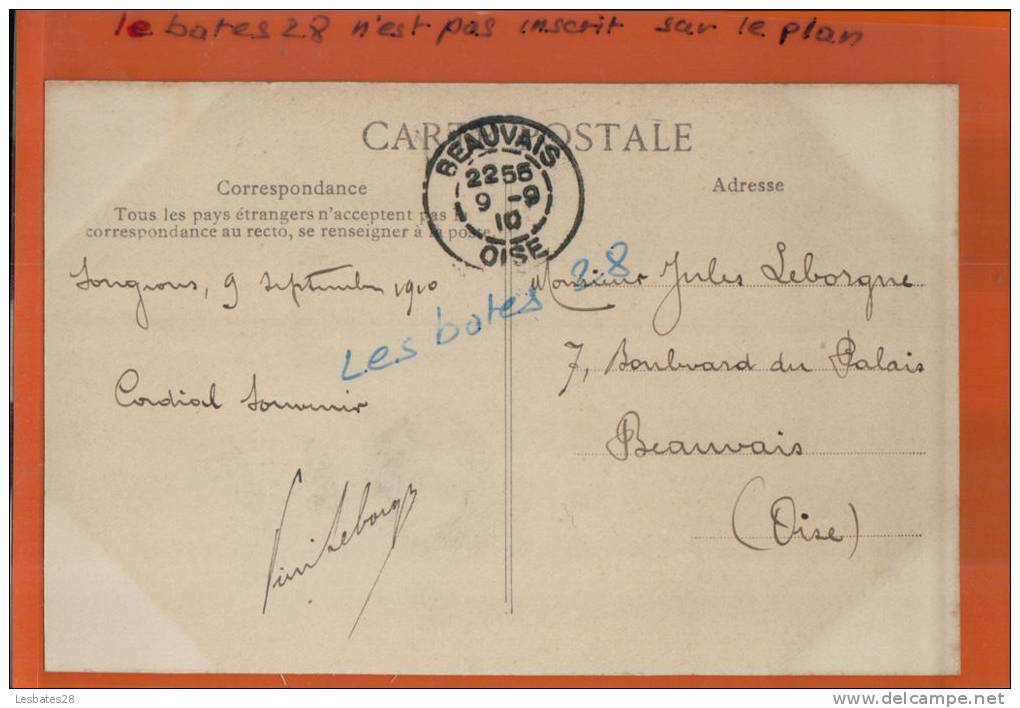 le bates 28 n'est pas inscrit sur le plan
CARTE POSTALE
BEAUVAIS
22 55
9 - 9
10
OISE
Correspondance
Tous les pays étrangers n'acceptent pas la
correspondance au recto, se renseigner à la poste.
Songeons, 9 Septembre 1910
Cordial Souvenir
Leborgne
Les bates 28
Adresse
Monsieur Jules Leborgne
7, Boulevard du Palais
Beauvais
(Oise)
Lesbates28
www.delcampe.net